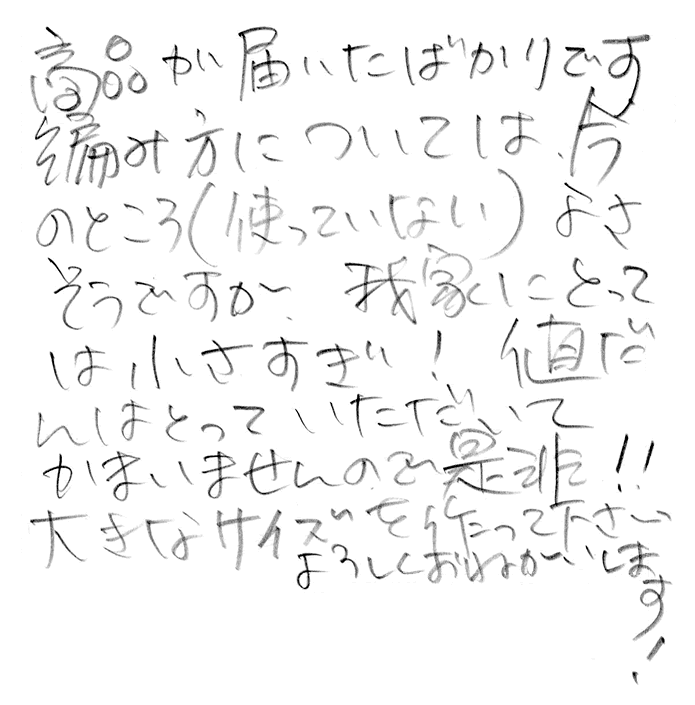 商品が届いたばかりです
編み方については、今
のところ(使っていない)よさ
そうですが、我家にとって
は小さすぎ! 値だ
んはとっていただいて
かまいませんので是非!!
大きなサイズを作って下さい
よろしくおねがいしま
す!